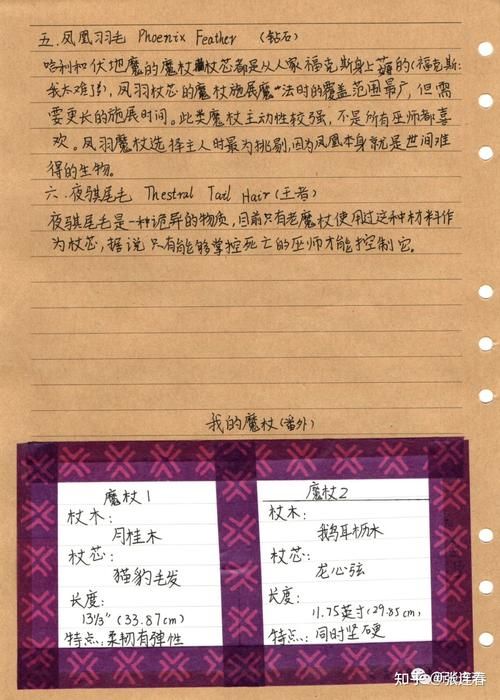 五.凤凰羽毛 Phoenix Feather (钻石)
哈利和伏地魔的魔杖杖芯都是从人家福克斯身上薅的(福克斯:
我太难了),凤羽杖芯的魔杖施展魔法时的覆盖范围最广,但需
要更长的施展时间。此类魔杖主动性较强,不是所有巫师都喜
欢。凤羽魔杖选择主人时最为挑剔,因为凤凰本身就是世间难
得的生物。
六.夜骐尾毛 Thestral Tail Hair (王者)
夜骐尾毛是一种诡异的物质,目前只有老魔杖使用过这种材料作
为杖芯,据说只有能够掌控死亡的巫师才能控制它。
我的魔杖(番外)
魔杖1
杖木:
月桂木
杖芯:
猫豹毛发
长度:
13⅓" (33.87cm)
特点:柔韧有弹性
魔杖2
杖木:
鹅耳枥木
杖芯:
龙心弦
长度:
11.75英寸(29.85cm)
特点:同时坚硬
知乎 @张连春